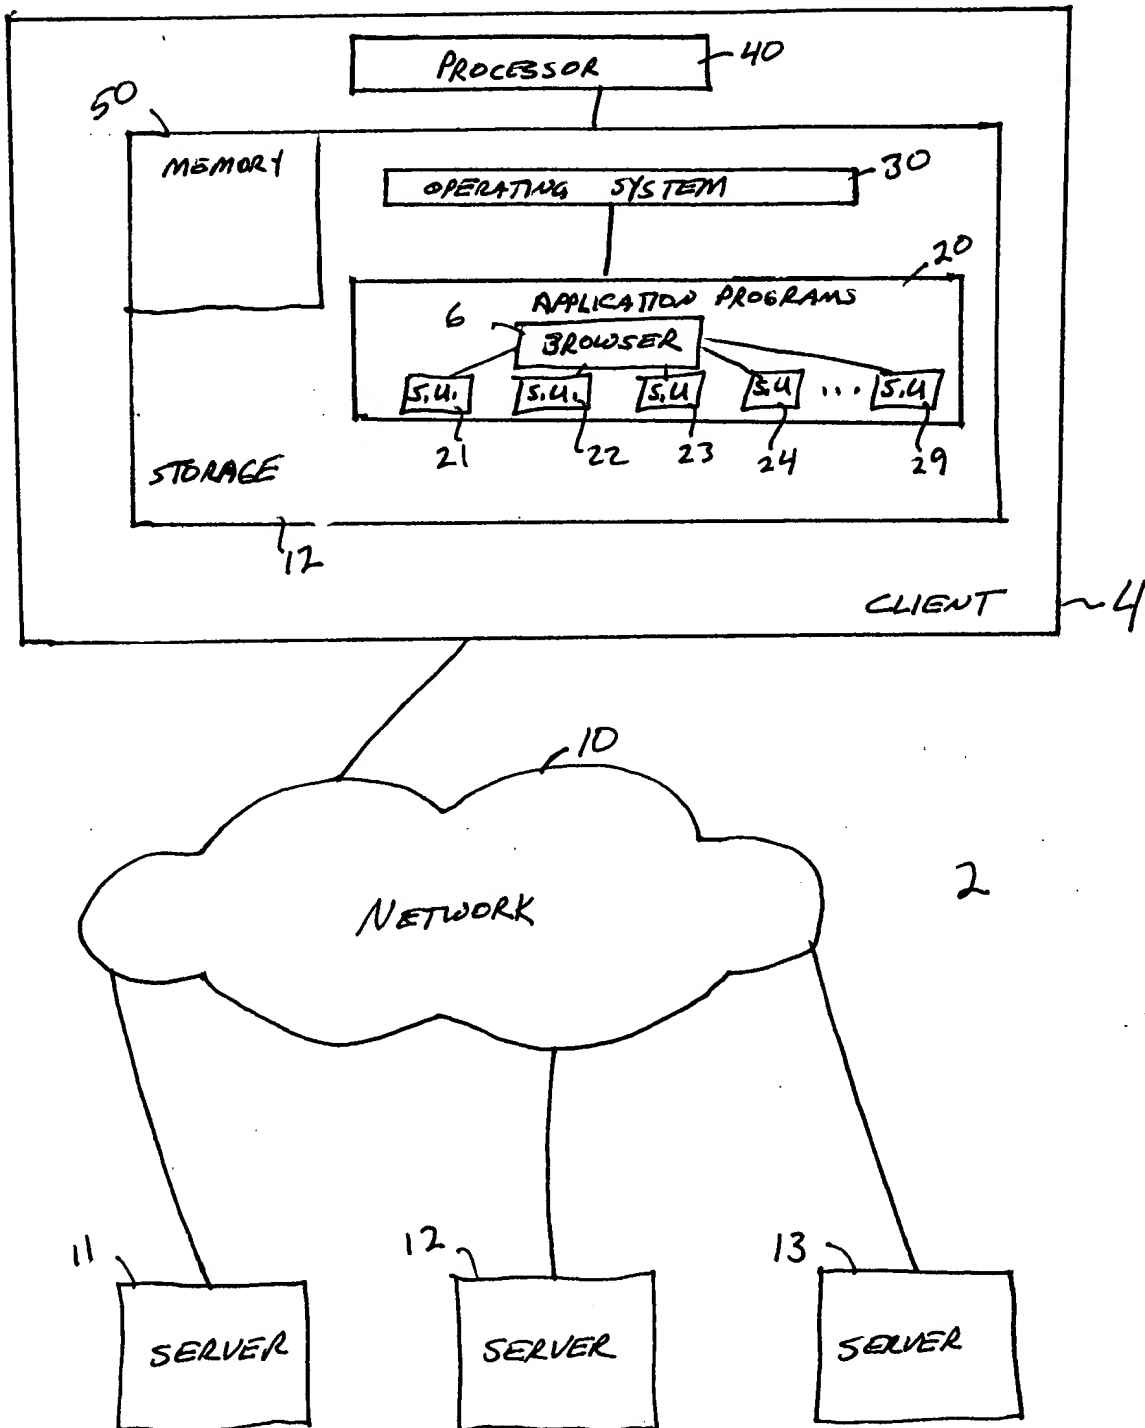 PROCESSOR 40
50
MEMORY
OPERATING SYSTEM 30
20
APPLICATION PROGRAMS
6
BROWSER
S.U. S.U. S.U S.U ... S.U
21 22 23 24 29
STORAGE
12
CLIENT 4
10
NETWORK
2
11 12 13
SERVER SERVER SERVER